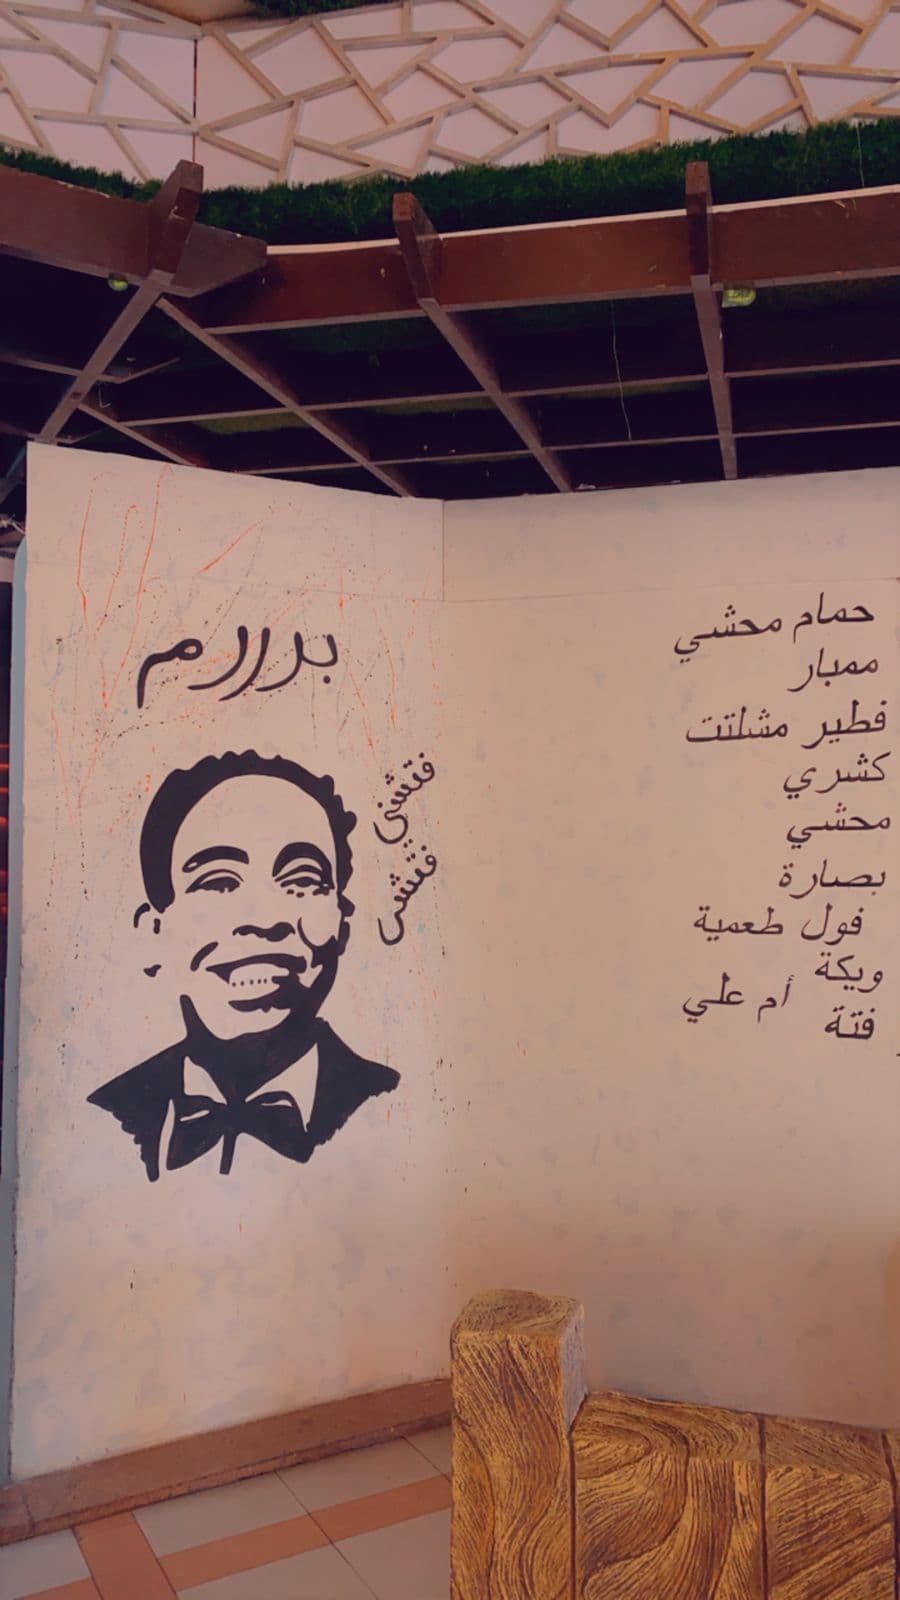 بدرردم
فتشني
فتش
حمام محشي
ممبار
فطير مشلتت
كشري
محشي
بصارة
فول طعمية
ويكة
أم علي
فتة